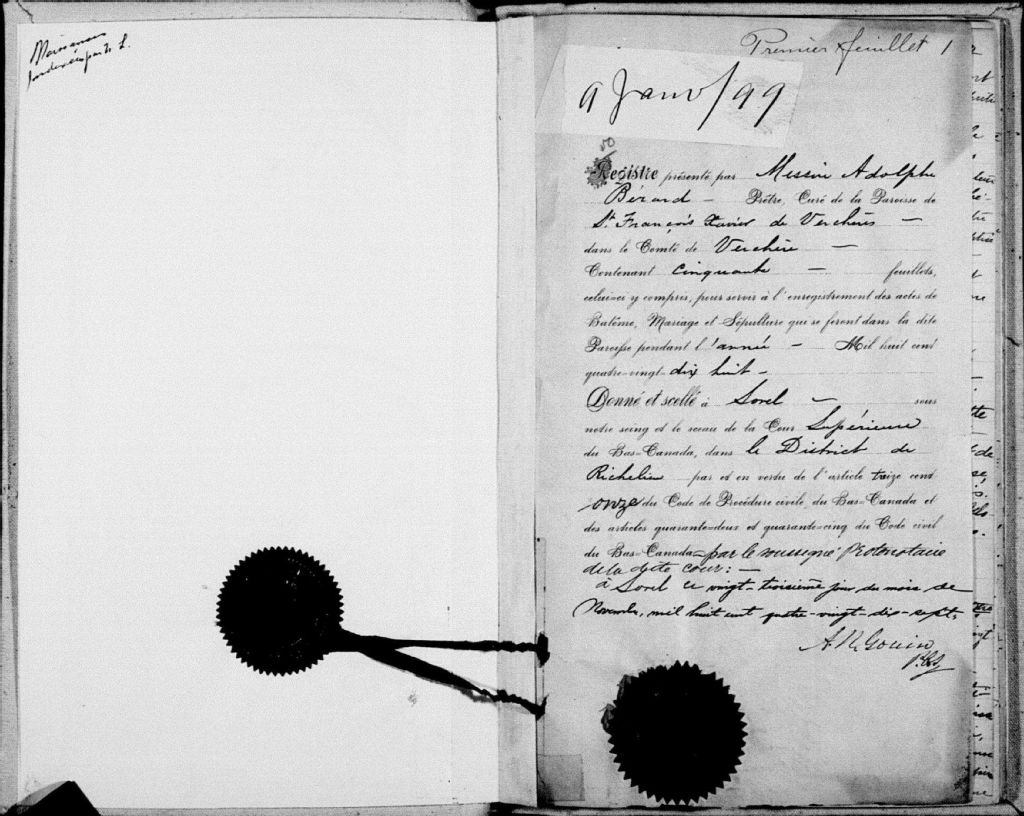 Premier feuillet 1
9 Janv/99
50
Registre présenté par Messire Adolphe
Bérard – Prêtre, Curé de la Paroisse de
St François Xavier de Verchères –
dans le Comté de Verchère –
Contenant Cinquante – feuillets,
celui-ci y compris, pour servir à l'enregistrement des actes de
Batême, Mariage et Sépulture qui se feront dans la dite
Paroisse pendant l'année – Mil huit cent
quatre-vingt-dix huit –
Donné et scellé à Sorel – sous
notre seing et le sceau de la Cour Supérieure
du Bas-Canada, dans le District de
Richelieu par et en vertu de l'article treize cent
onze du Code de Procédure civile, du Bas-Canada et
des articles quarante-deux et quarante-cinq du Code civil
du Bas-Canada – par le soussigné Protonotaire
de la dite cour : –
à Sorel ce vingt-troisième jour du mois de
Novembre, mil huit cent quatre-vingt-dix-sept.
A. N. Gouin